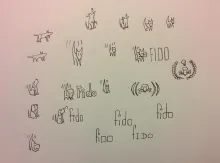 FIDO
Fido
fido
fido
fido
fido
FIDO